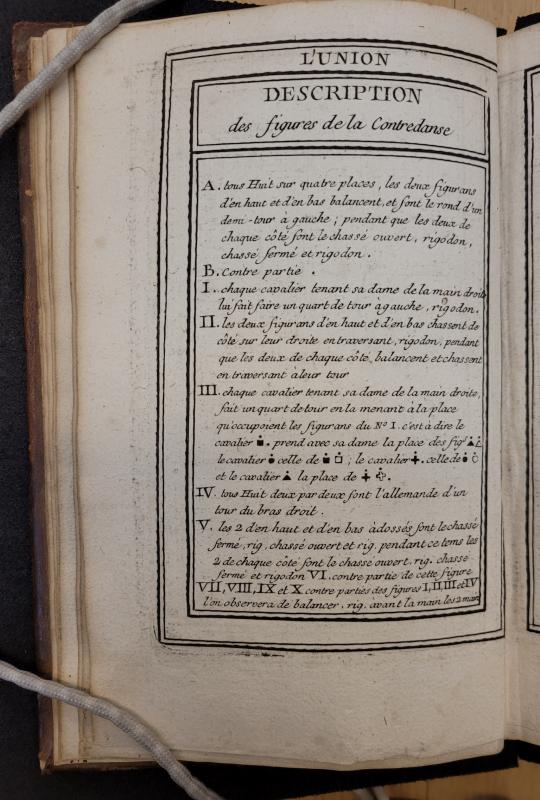 L'UNION
DESCRIPTION
des figures de la Contredanse
A. tous Huit sur quatre places, les deux figurans
d'en haut et d'en bas balancent, et font le rond d'un
demi-tour à gauche; pendant que les deux de
chaque côté font le chassé ouvert, rigodon,
chassé fermé et rigodon.
B. Contre partie.
I. chaque cavalier tenant sa dame de la main droite
lui fait faire un quart de tour à gauche, rigodon.
II. les deux figurans d'en haut et d'en bas chassent de
côté sur leur droite en traversant, rigodon, pendant
que les deux de chaque côté balancent et chassent
en traversant à leur tour
III. chaque cavalier tenant sa dame de la main droite,
fait un quart de tour en la menant à la place
qu'occupoient les figurans du Nº I. c'est à dire le
cavalier ■. prend avec sa dame la place des figs ▲
le cavalier ● celle de ■ □; le cavalier ✚. celle de ● ○
et le cavalier ▲ la place de ✚
IV. tous Huit deux par deux font l'allemande d'un
tour du bras droit.
V. les 2 d'en haut et d'en bas àdossés font le chassé
fermé, rig, chassé ouvert et rig. pendant ce tems les
2 de chaque côté font le chassé ouvert, rig. chassé
fermé et rigodon VI. contre partie de cette figure
VII, VIII, IX et X contre parties des figures I, II, III et IV
l'on observera de balancer, rig. avant la main les 2 mains